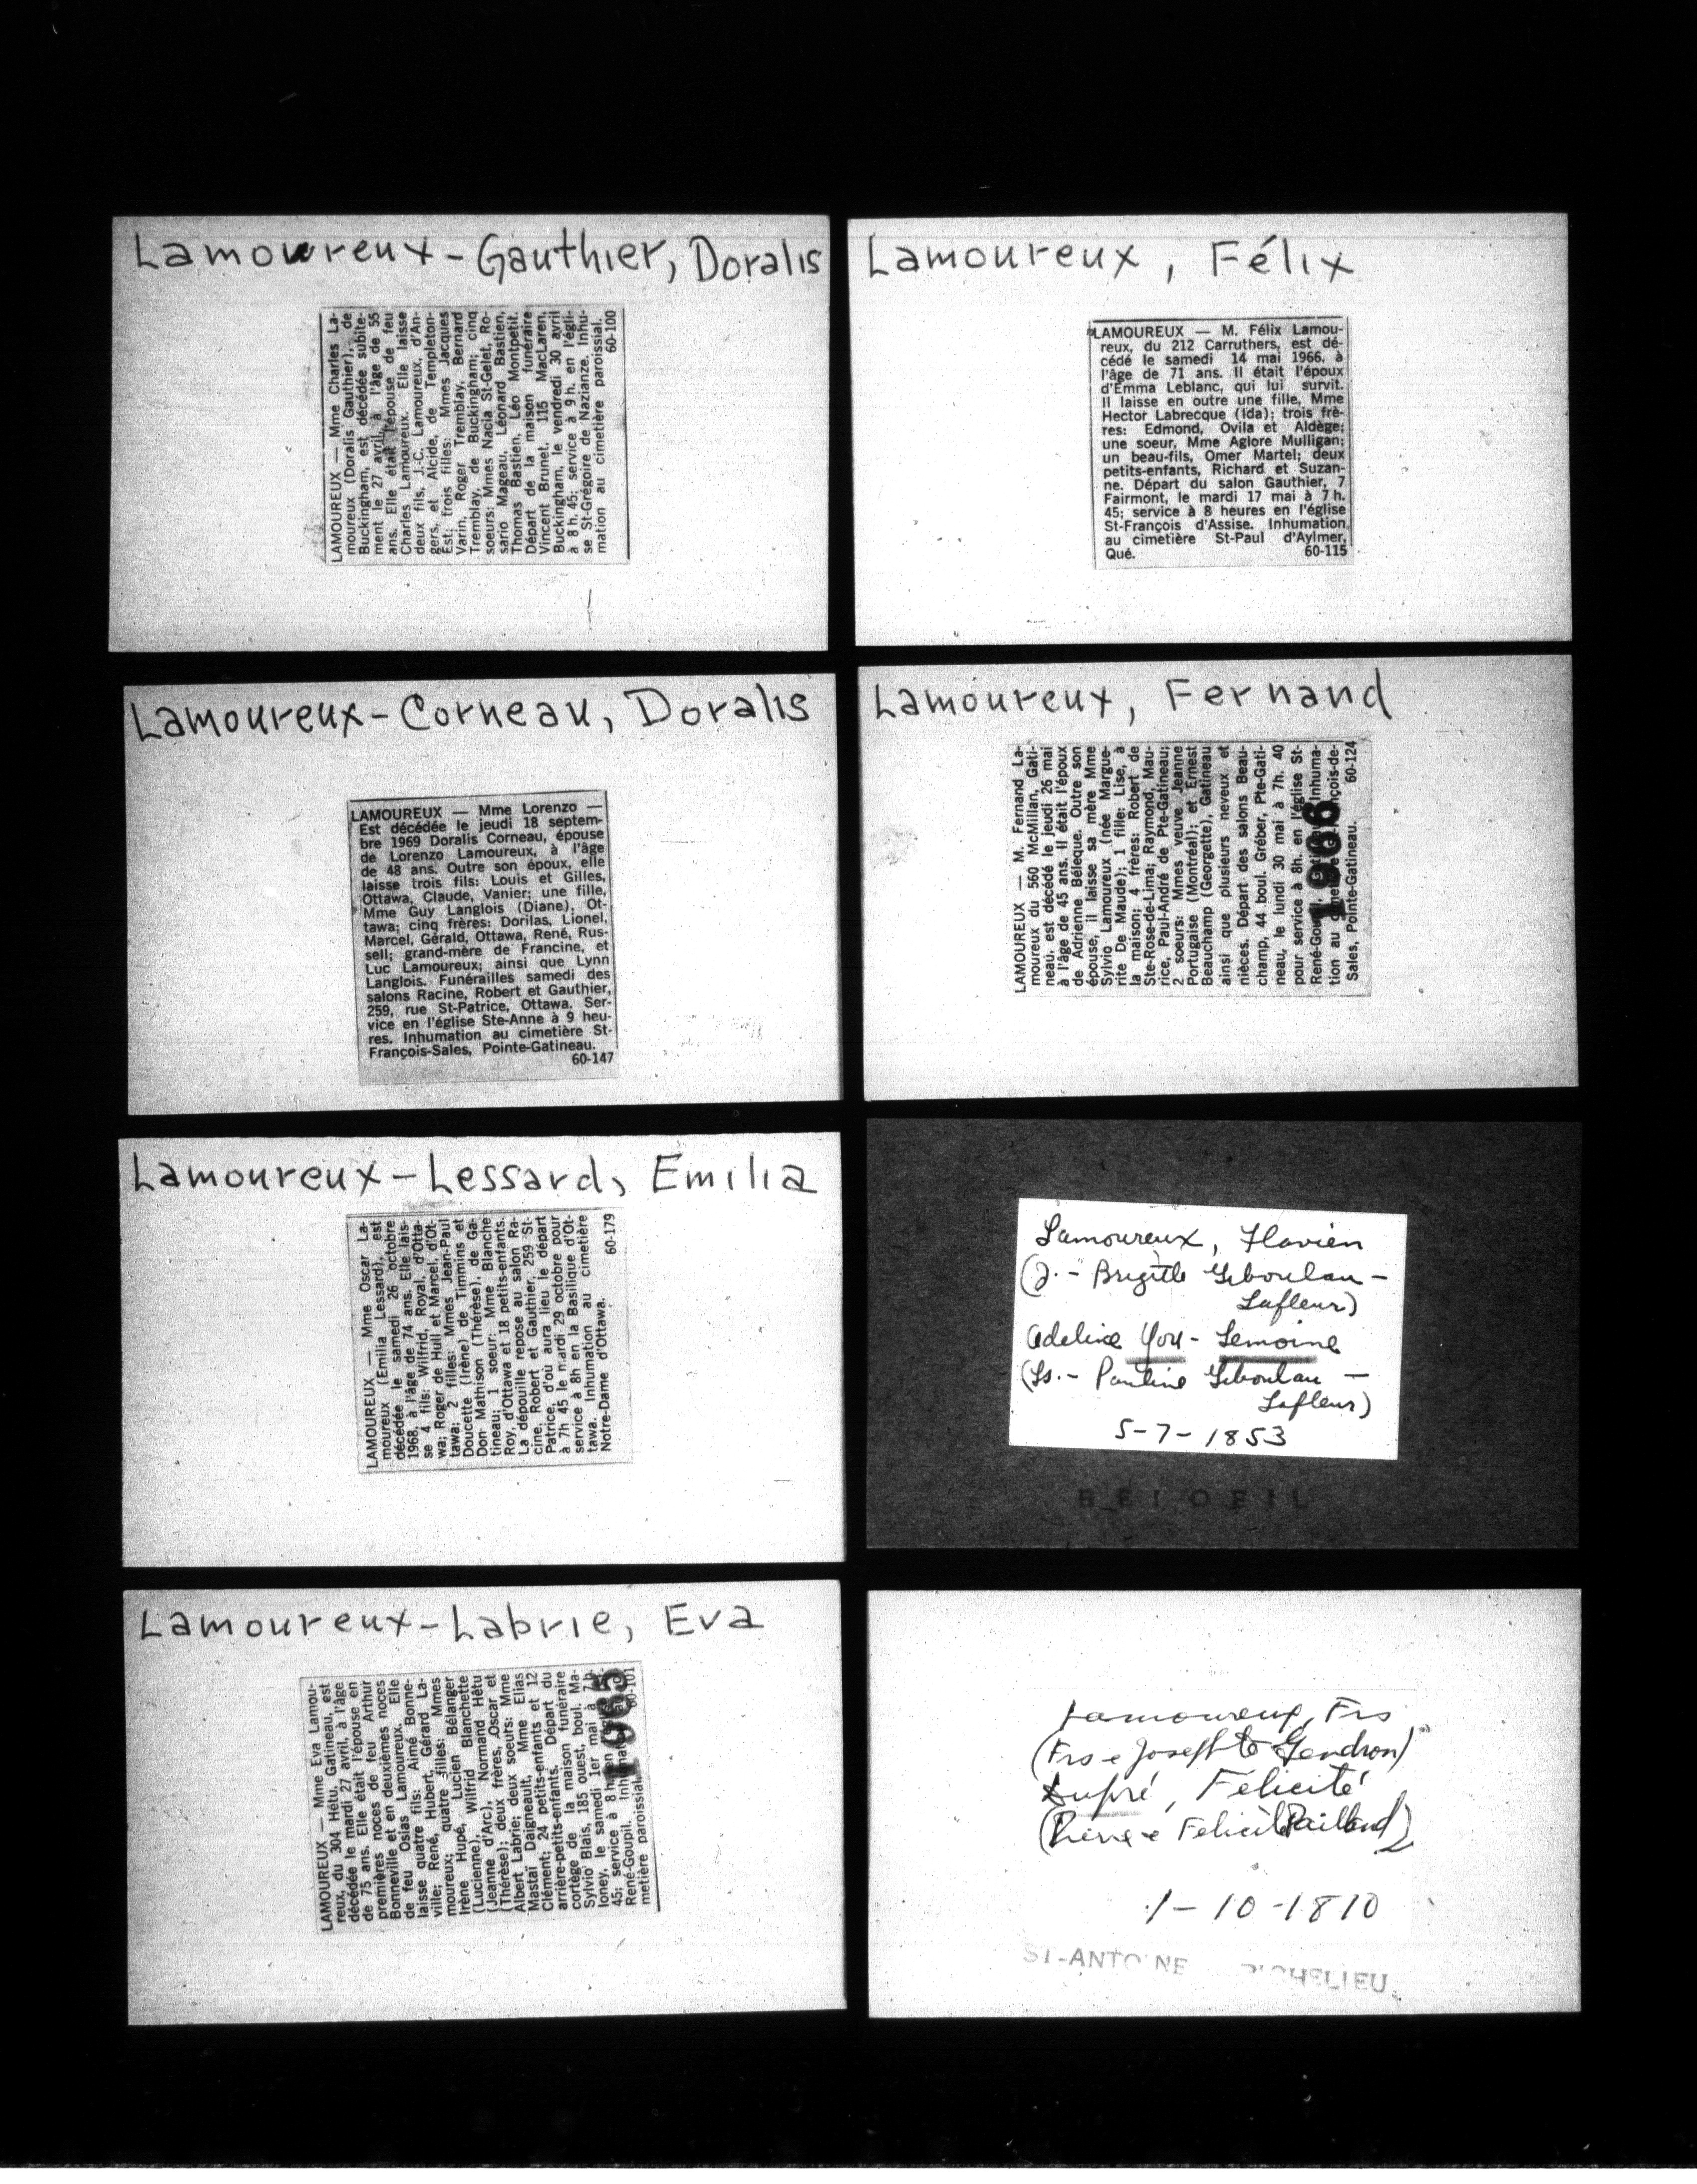 Lamoureux-Gauthier, Doralis
LAMOUREUX — Mme Charles La-
moureux (Doralis Gauthier), de
Buckingham, est décédée subite-
ment le 27 avril, à l'âge de 55
ans. Elle était l'épouse de feu
Charles Lamoureux. Elle laisse
deux fils, J.-C. Lamoureux, d'An-
gers, et Alcide, de Templeton-
Est; trois filles: Mmes Jacques
Varin, Roger Tremblay, Bernard
Tremblay, de Buckingham; cinq
soeurs: Mmes Nacia St-Gelet, Ro-
sario Mageau, Léonard Bastien,
Thomas Bastien, Léo Montpetit.
Départ de la maison funéraire
Vincent Brunet, 115 MacLaren,
Buckingham, le vendredi 30 avril
à 8 h. 45; service à 9 h. en l'égli-
se St-Grégoire de Nazianze. Inhu-
mation au cimetière paroissial.
60-100
Lamoureux, Félix
LAMOUREUX — M. Félix Lamou-
reux, du 212 Carruthers, est dé-
cédé le samedi 14 mai 1966, à
l'âge de 71 ans. Il était l'époux
d'Emma Leblanc, qui lui survit.
Il laisse en outre une fille, Mme
Hector Labrecque (Ida); trois frè-
res: Edmond, Ovila et Aldège;
une soeur, Mme Aglore Mulligan;
un beau-fils, Omer Martel; deux
petits-enfants, Richard et Suzan-
ne. Départ du salon Gauthier, 7
Fairmont, le mardi 17 mai à 7 h.
45; service à 8 heures en l'église
St-François d'Assise. Inhumation
au cimetière St-Paul d'Aylmer,
Qué. 60-115
Lamoureux-Corneau, Doralis
LAMOUREUX — Mme Lorenzo —
Est décédée le jeudi 18 septem-
bre 1969 Doralis Corneau, épouse
de Lorenzo Lamoureux, à l'âge
de 48 ans. Outre son époux, elle
laisse trois fils: Louis et Gilles,
Ottawa, Claude, Vanier; une fille,
Mme Guy Langlois (Diane), Ot-
tawa; cinq frères: Dorilas, Lionel,
Marcel, Gérald, Ottawa, René, Rus-
sell; grand-mère de Francine, et
Luc Lamoureux; ainsi que Lynn
Langlois. Funérailles samedi des
salons Racine, Robert et Gauthier,
259, rue St-Patrice, Ottawa. Ser-
vice en l'église Ste-Anne à 9 heu-
res. Inhumation au cimetière St-
François-Sales, Pointe-Gatineau.
60-147
Lamoureux, Fernand
LAMOUREUX — M. Fernand La-
moureux du 560 McMillan, Gati-
neau, est décédé le jeudi 26 mai
à l'âge de 45 ans. Il était l'époux
de Adrienne Béleque. Outre son
épouse, il laisse sa mère Mme
Sylvio Lamoureux (née Margue-
rite De Maude); 1 fille: Lise, à
la maison; 4 frères: Robert de
Ste-Rose-de-Lima; Raymond, Mau-
rice, Paul-André de Pte-Gatineau;
2 soeurs: Mmes veuve Jeanne
Portugaise (Montréal); et Ernest
Beauchamp (Georgette), Gatineau
ainsi que plusieurs neveux et
nièces. Départ des salons Beau-
champ, 44 boul. Gréber, Pte-Gati-
neau, le lundi 30 mai à 7h. 40
pour service à 8h. en l'église St-
René-Goupil, Inhuma-
tion au
Sales, Pointe-Gatineau. 60-124
1966
Lamoureux-Lessard, Emilia
LAMOUREUX — Mme Oscar La-
moureux (Emilia Lessard), est
décédée le samedi 26 octobre
1968, à l'âge de 74 ans. Elle lais-
se 4 fils: Wilfrid, Royal, d'Otta-
wa; Roger de Hull et Marcel, d'Ot-
tawa; 2 filles: Mmes Jean-Paul
Doucette (Irène) de Timmins et
Don Mathison (Thérèse), de Ga-
tineau; 1 soeur: Mme Blanche
Roy, d'Ottawa et 18 petits-enfants.
La dépouille repose au salon Ra-
cine, Robert et Gauthier, 259 St-
Patrice, d'où aura lieu le départ
à 7h 45 le mardi 29 octobre pour
service à 8h en la Basilique d'Ot-
tawa. Inhumation au cimetière
Notre-Dame d'Ottawa. 60-179
Lamoureux, Flavien
(J. - Brigitte Giboulau -
Lafleur)
Adeline You - Lemoine
(Ls. - Pauline Giboulau -
Lafleur)
5-7-1853
BELOEIL
Lamoureux-Labrie, Eva
LAMOUREUX — Mme Eva Lamou-
reux, du 304 Hétu, Gatineau, est
décédée le mardi 27 avril, à l'âge
de 75 ans. Elle était l'épouse en
premières noces de feu Arthur
Bonneville et en deuxièmes noces
de feu Osias Lamoureux. Elle
laisse quatre fils: Aimé Bonne-
ville; René, Hubert, Gérard La-
moureux; quatre filles: Mmes
Irène Hupé, Lucien Bélanger
(Lucienne), Wilfrid Blanchette
(Jeanne d'Arc), Normand Hétu
(Thérèse); deux frères, Oscar et
Albert Labrie; deux soeurs: Mme
Mastaï Daigneault, Mme Elias
Clément; 24 petits-enfants et 12
arrière-petits-enfants. Départ du
cortège de la maison funéraire
Sylvio Blais, 185 ouest, boul. Ma-
loney, le samedi 1er mai à 7 h.
45; service à 8 h. en
René-Goupil.
metière paroissial. 60-101
1965
Lamoureux, Frs
(Frs e Josephte Gendron)
Dupré, Félicité
(Pierre e Félicité Paillard)
1-10-1810
ST-ANTOINE RICHELIEU